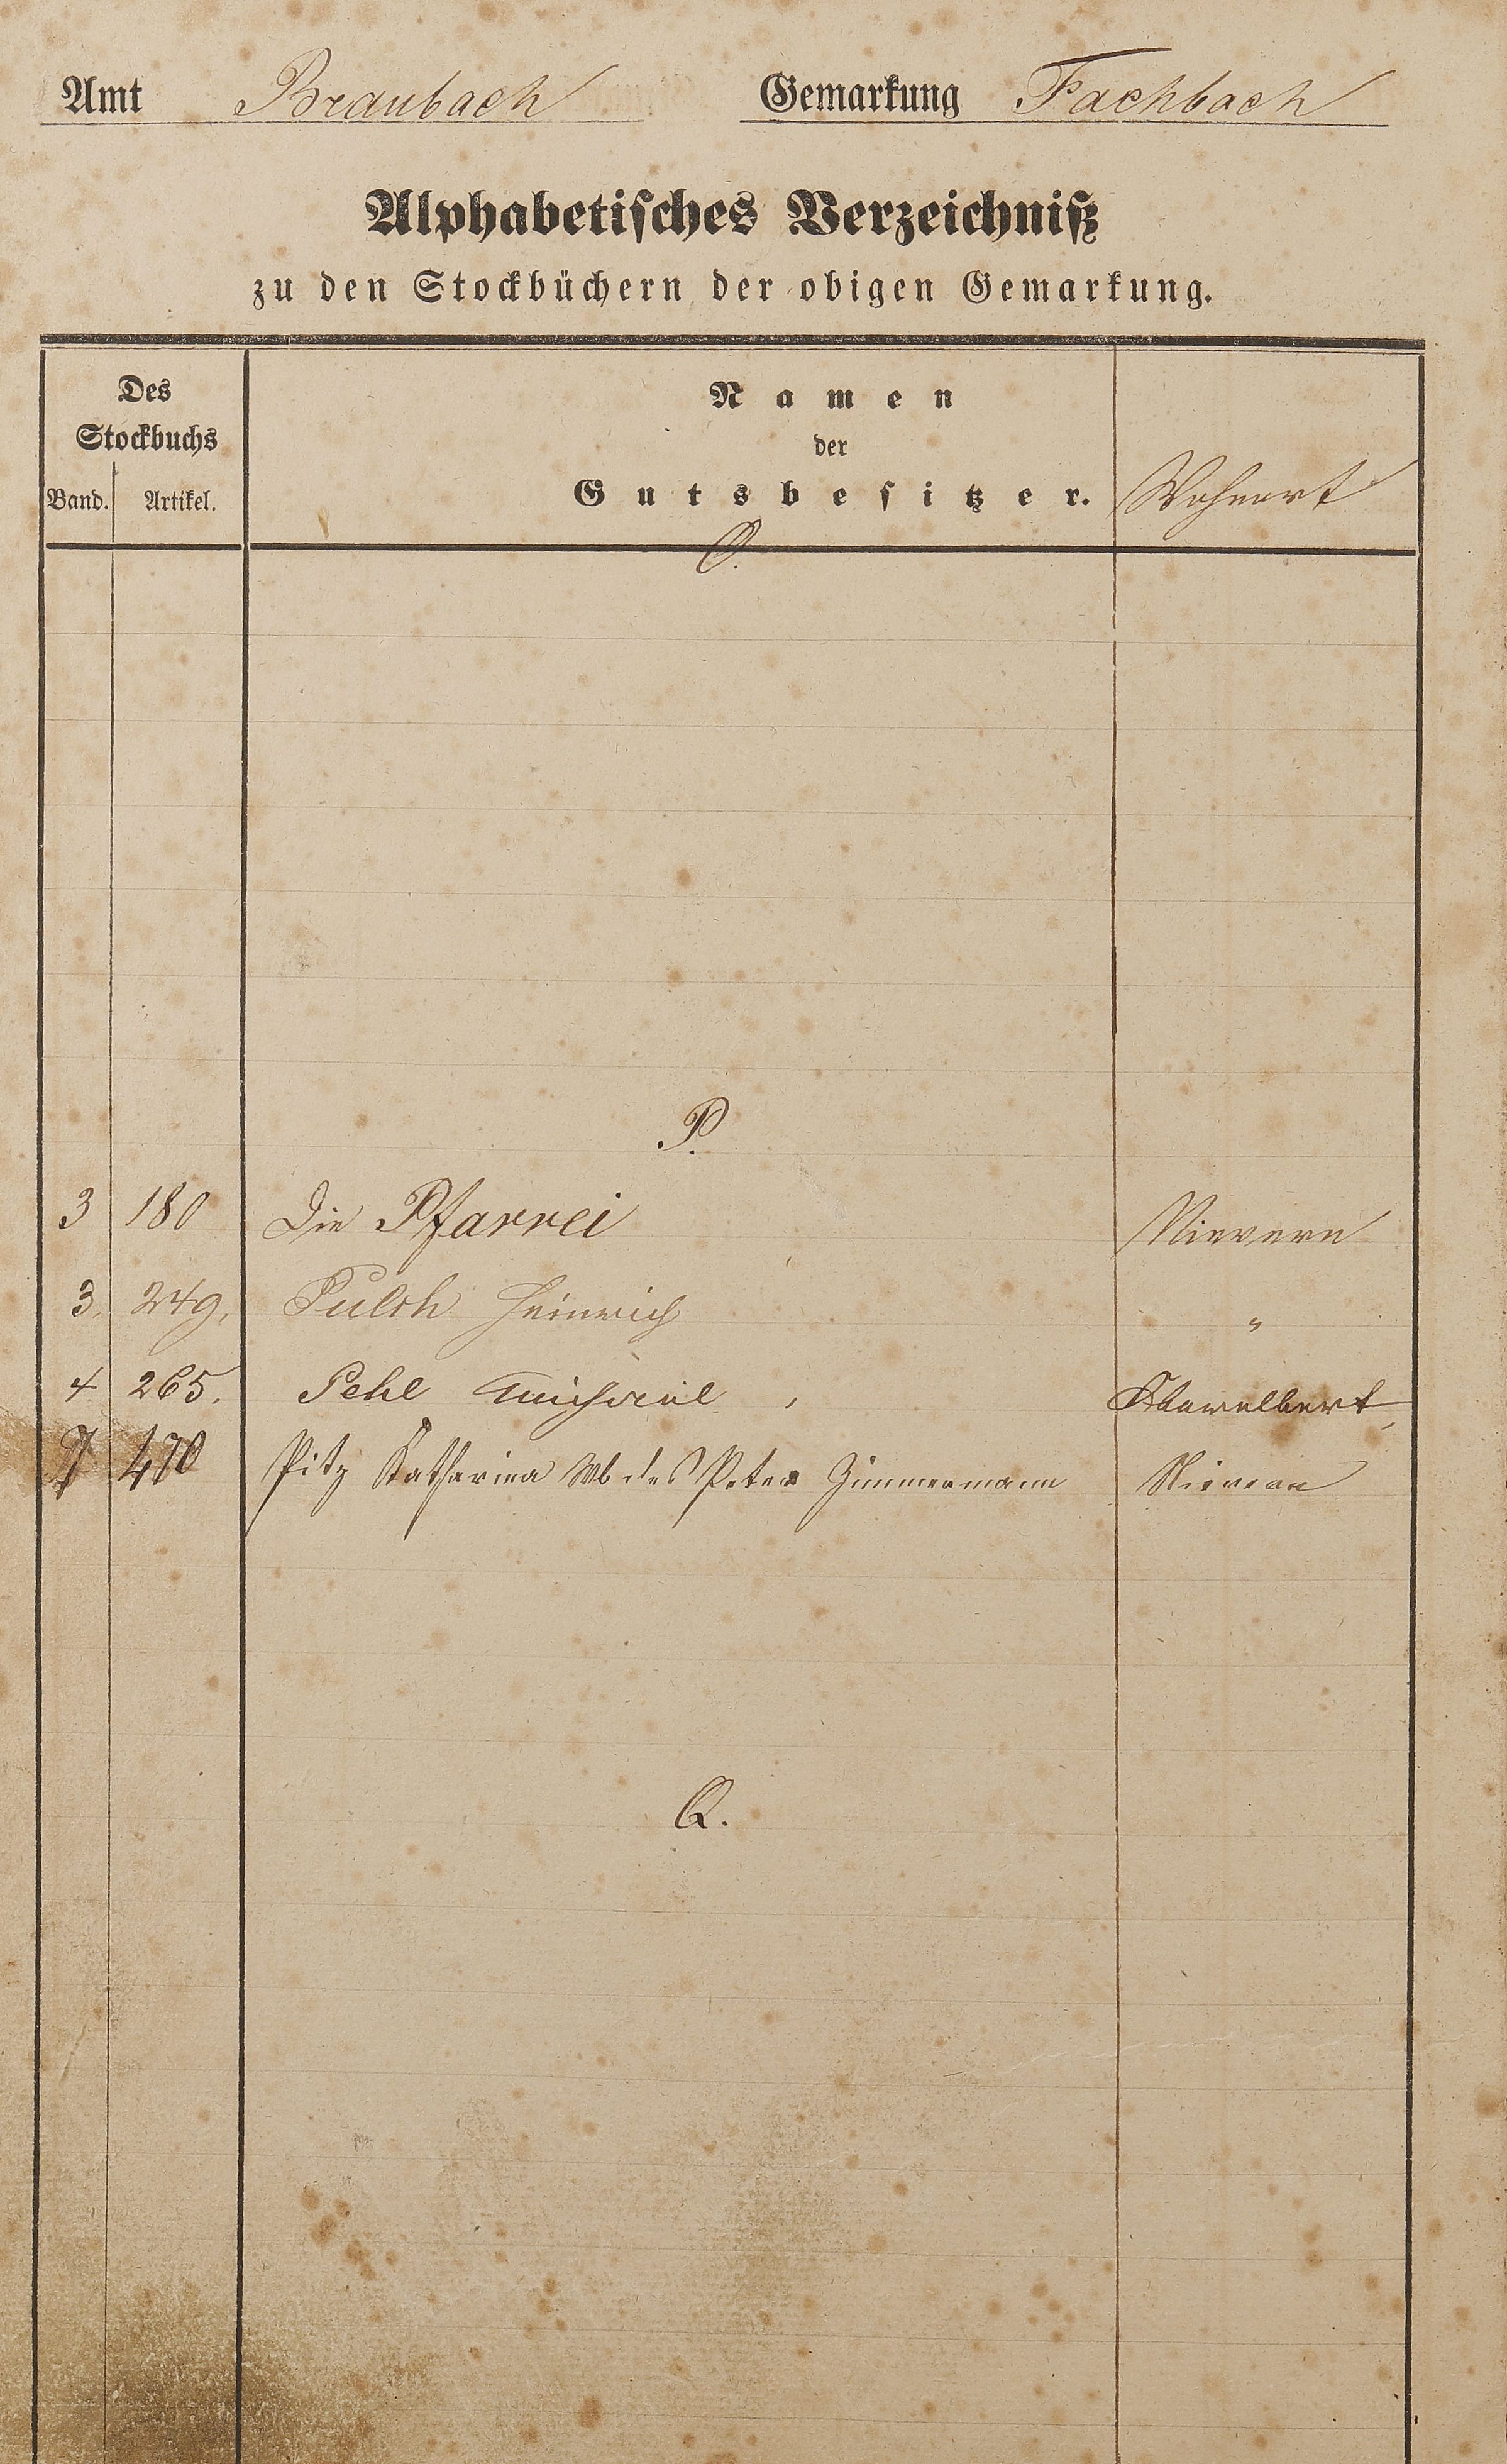 Amt Braubach Gemarkung Fachbach
Alphabetisches Verzeichniß
zu den Stockbüchern der obigen Gemarkung.
Des
Stockbuchs
Band. Artikel.
Namen
der
Gutsbesitzer. Wohnort
O.
P.
3 180 Die Pfarrei Nievern
3. 249. Pulch Heinrich "
4 265. Pehl Michael Oberelbert
7 470 Pitz Katharina Wb des Peter Zimmermann Nievern
Q.